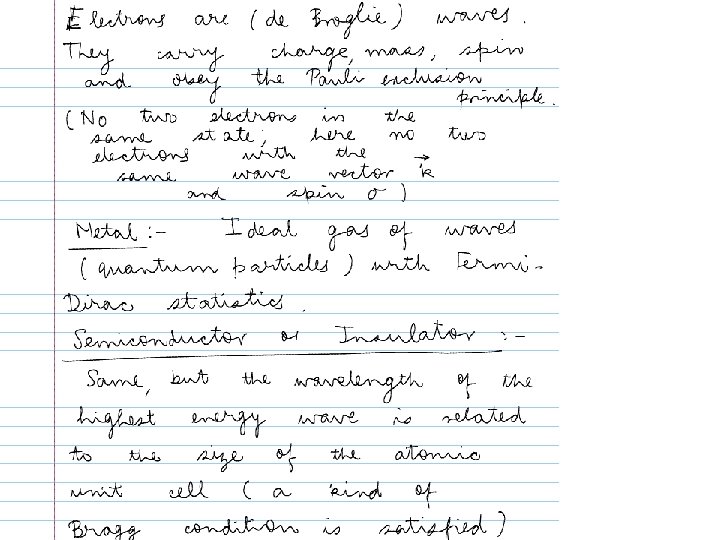 Electrons are (de Broglie) waves.
They carry charge, mass, spin
and obey the Pauli exclusion
principle.
(No two electrons in the
same state; here no two
electrons with the
same wave vector k⃗
and spin σ)
Metal :- Ideal gas of waves
(quantum particles) with Fermi-
Dirac statistics.
Semiconductor or Insulator :-
Same, but the wavelength of the
highest energy wave is related
to the size of the atomic
unit cell (a kind of
Bragg condition is satisfied)